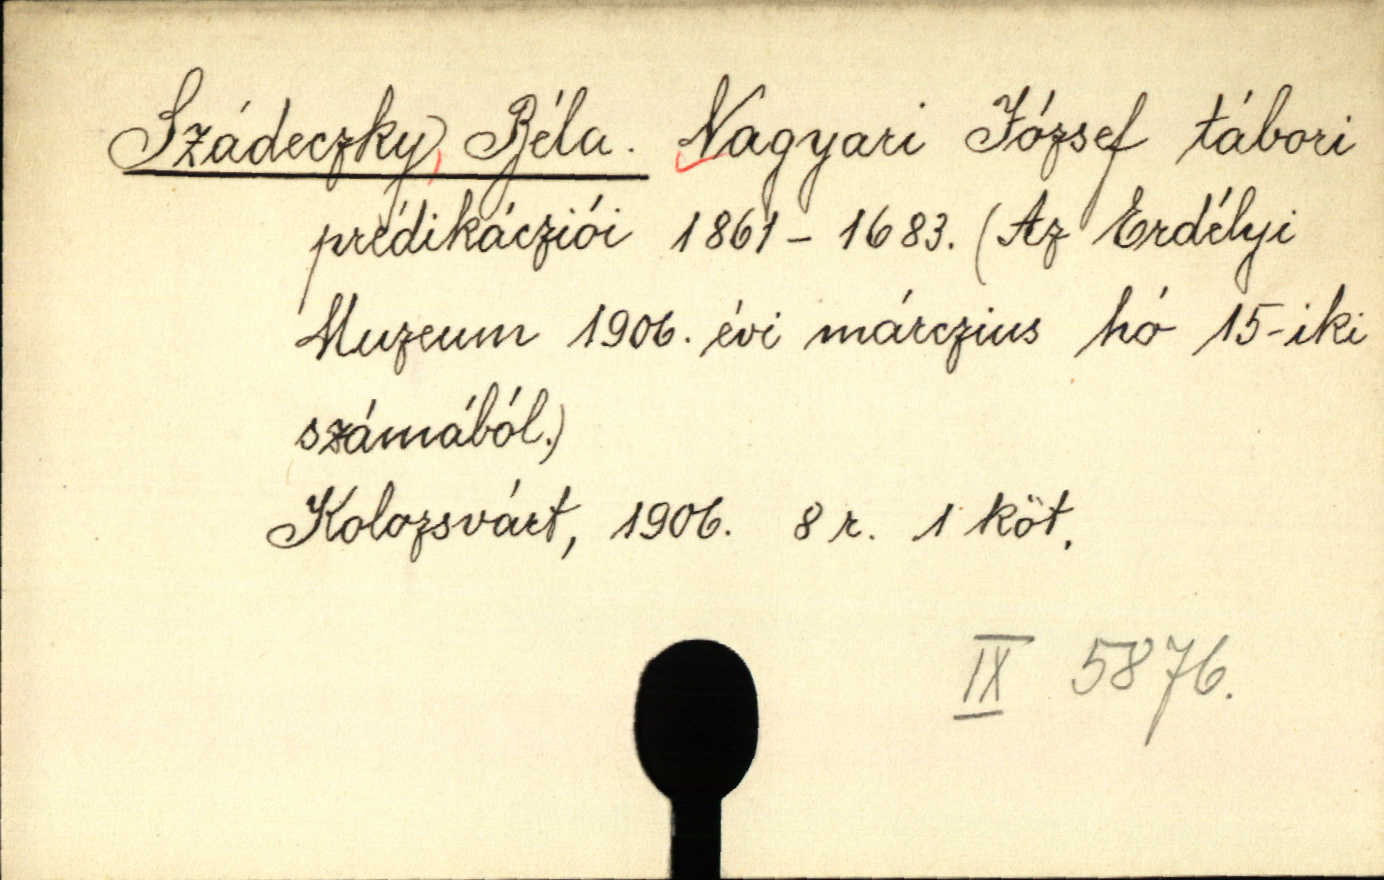 Szádeczky, Béla. Nagyari József tábori
prédikácziói 1861-1683. (Az Erdélyi
Muzeum 1906. évi márczius hó 15-iki
számából.)
Kolozsvárt, 1906. 8 r. 1 köt.
IX 5876.